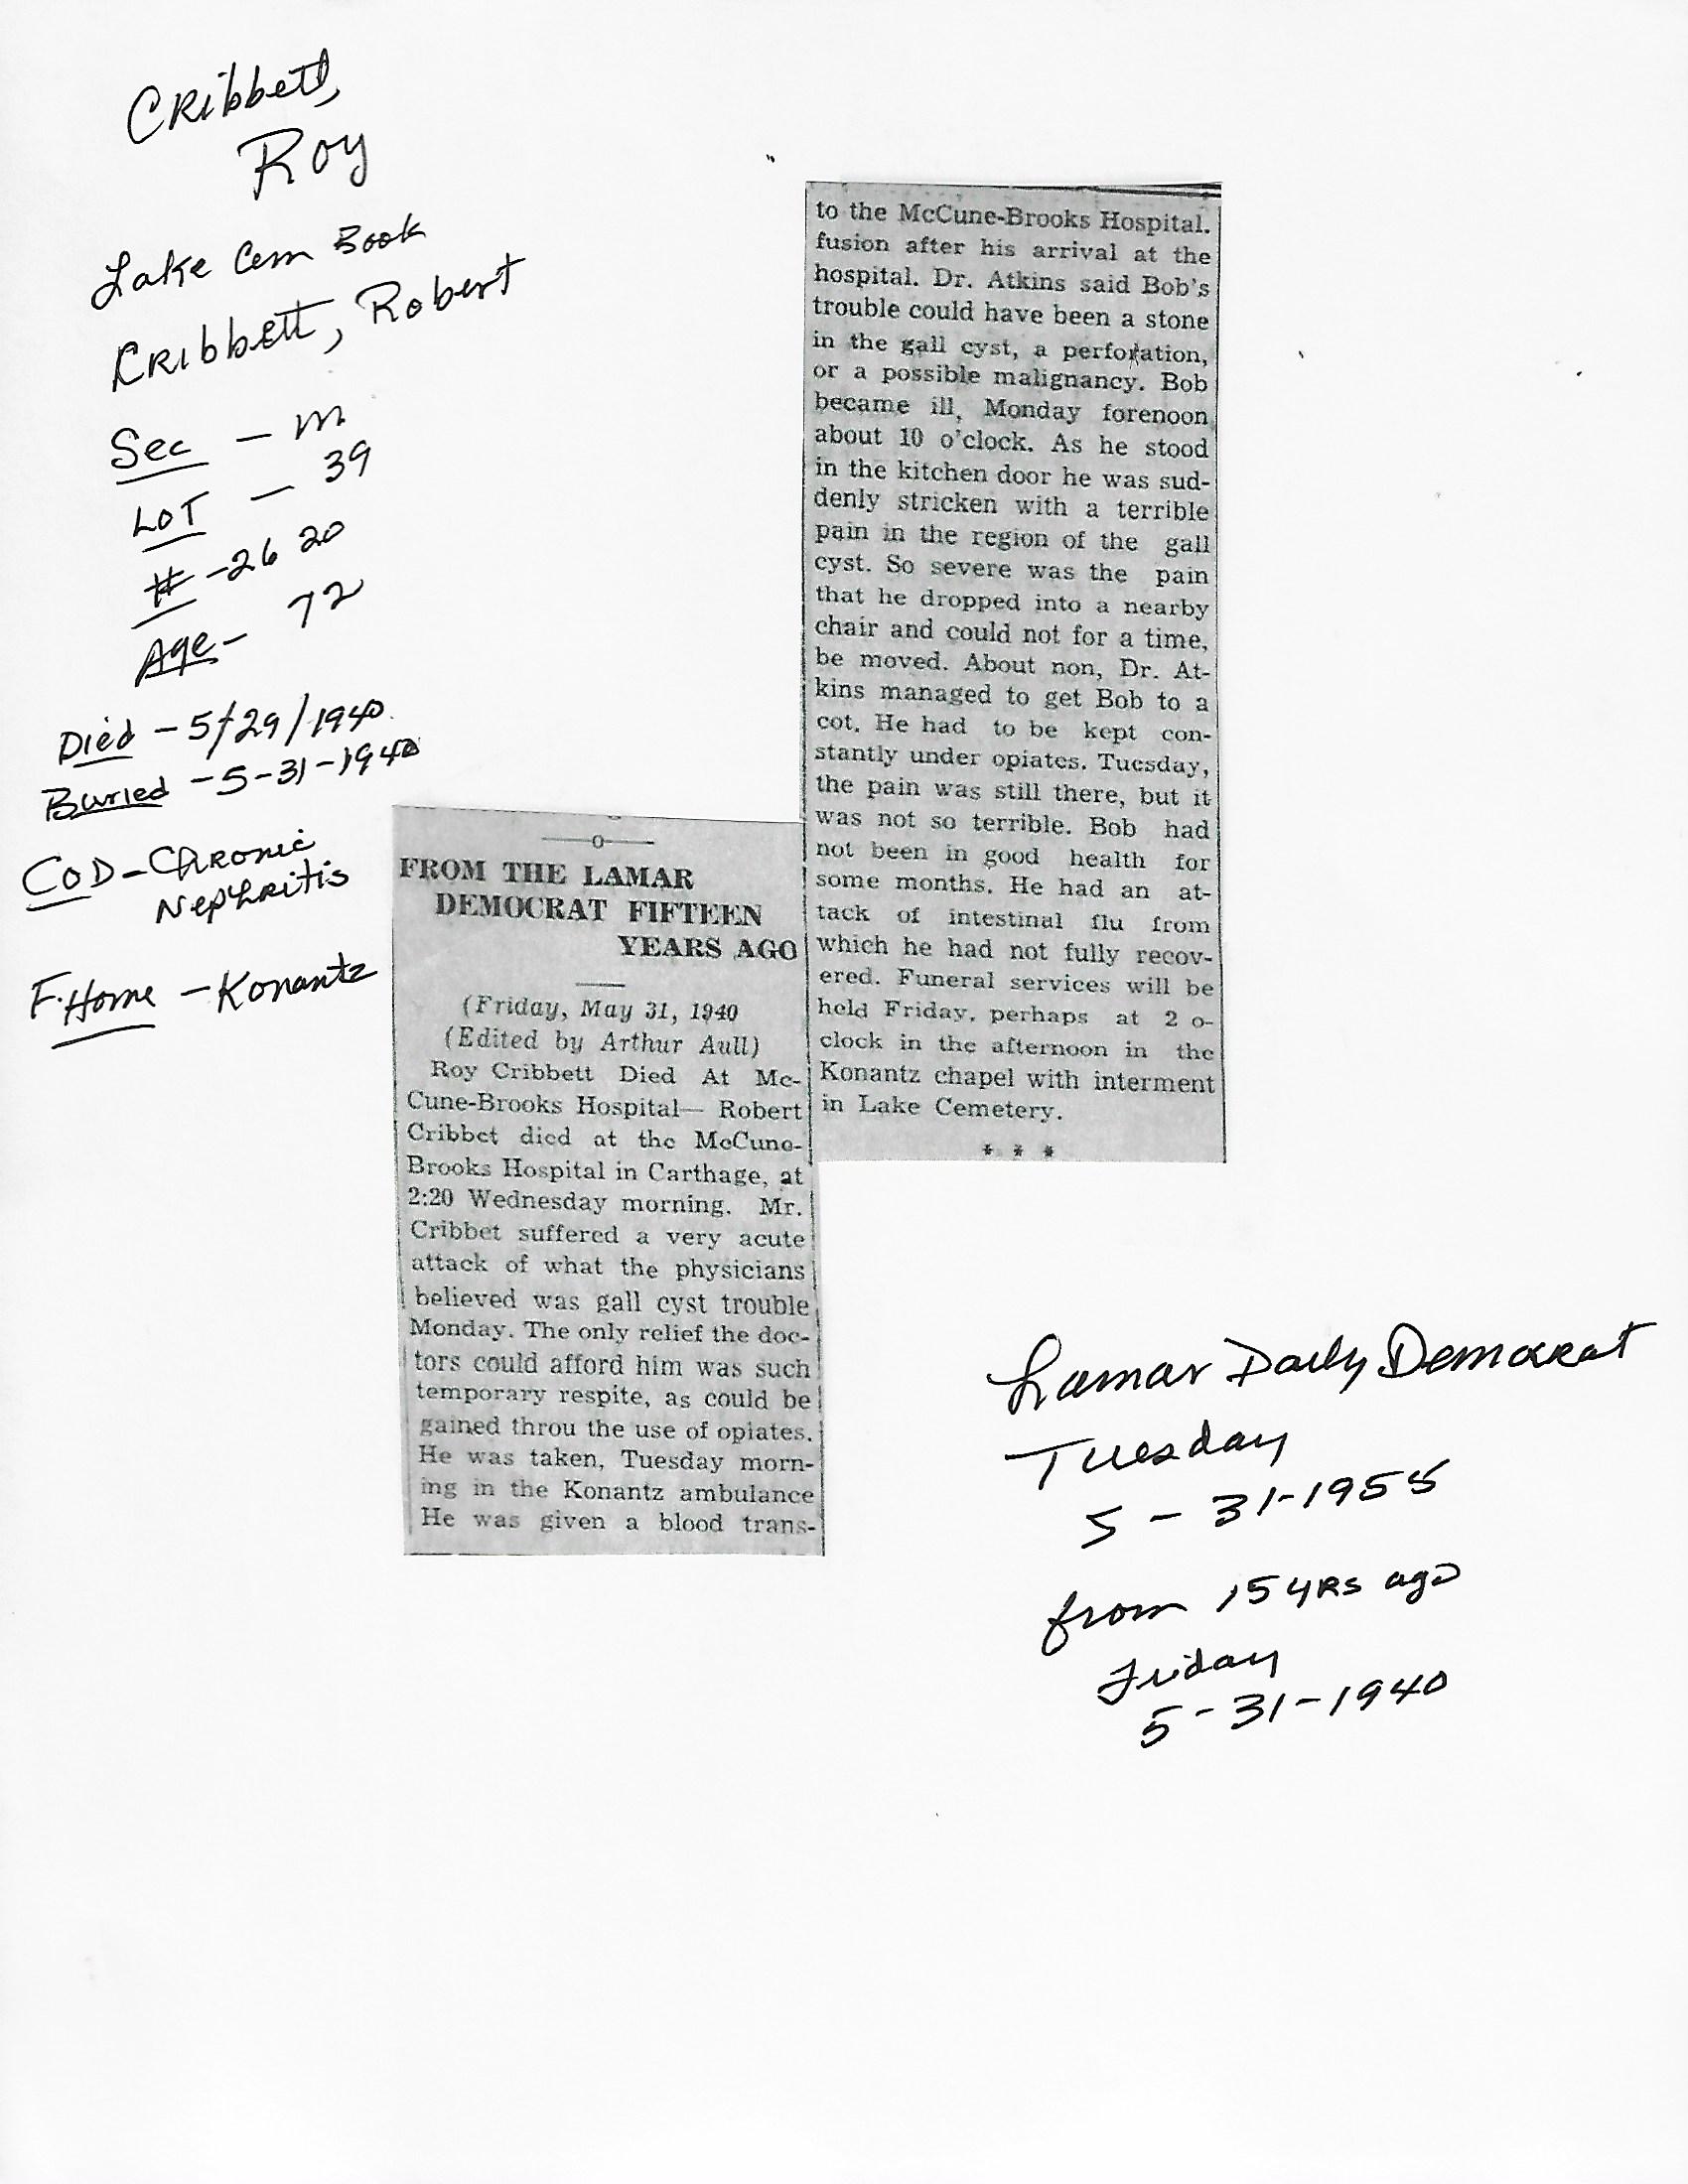 Cribbett,
Roy
Lake Cem Book
Cribbett, Robert
Sec - M
LOT - 39
# - 26 20
Age - 72
Died - 5/29/1940
Buried - 5-31-1940
COD - Chronic
Nephritis
F. Home - Konantz
—o—
FROM THE LAMAR
DEMOCRAT FIFTEEN
YEARS AGO
(Friday, May 31, 1940
(Edited by Arthur Aull)
Roy Cribbett Died At Mc-
Cune-Brooks Hospital— Robert
Cribbet died at the McCune-
Brooks Hospital in Carthage, at
2:20 Wednesday morning. Mr.
Cribbet suffered a very acute
attack of what the physicians
believed was gall cyst trouble
Monday. The only relief the doc-
tors could afford him was such
temporary respite, as could be
gained throu the use of opiates.
He was taken, Tuesday morn-
ing in the Konantz ambulance
He was given a blood trans-
to the McCune-Brooks Hospital.
fusion after his arrival at the
hospital. Dr. Atkins said Bob's
trouble could have been a stone
in the gall cyst, a perforation,
or a possible malignancy. Bob
became ill, Monday forenoon
about 10 o'clock. As he stood
in the kitchen door he was sud-
denly stricken with a terrible
pain in the region of the gall
cyst. So severe was the pain
that he dropped into a nearby
chair and could not for a time,
be moved. About non, Dr. At-
kins managed to get Bob to a
cot. He had to be kept con-
stantly under opiates. Tuesday,
the pain was still there, but it
was not so terrible. Bob had
not been in good health for
some months. He had an at-
tack of intestinal flu from
which he had not fully recov-
ered. Funeral services will be
held Friday, perhaps at 2 o-
clock in the afternoon in the
Konantz chapel with interment
in Lake Cemetery.
* * *
Lamar Daily Democrat
Tuesday
5 - 31-1955
from 15 yrs ago
Friday
5-31-1940